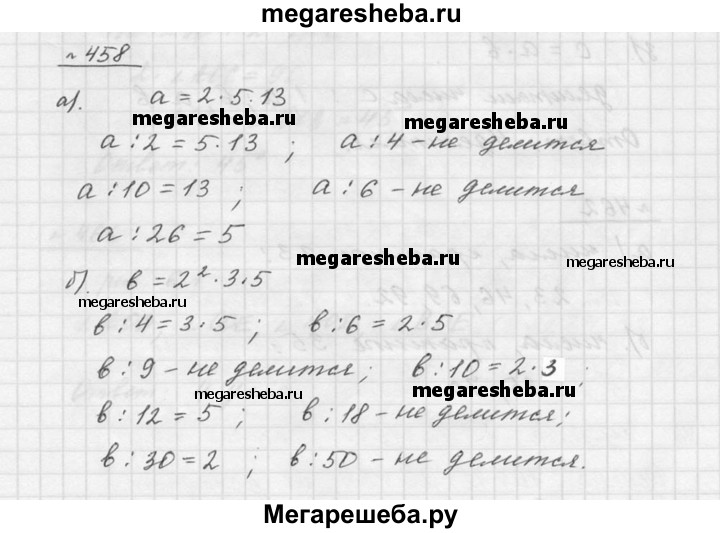 megaresheba.ru
№ 458
а). a = 2·5·13
megaresheba.ru megaresheba.ru
a : 2 = 5·13 ; a : 4 – не делится
a : 10 = 13 ; a : 6 – не делится
a : 26 = 5
megaresheba.ru megaresheba.ru
б). в = 2²·3·5
megaresheba.ru
в : 4 = 3·5 ; в : 6 = 2·5
в : 9 – не делится ; в : 10 = 2·3 ;
megaresheba.ru megaresheba.ru
в : 12 = 5 ; в : 18 – не делится ;
в : 30 = 2 ; в : 50 – не делится.
Мегарешеба.ру